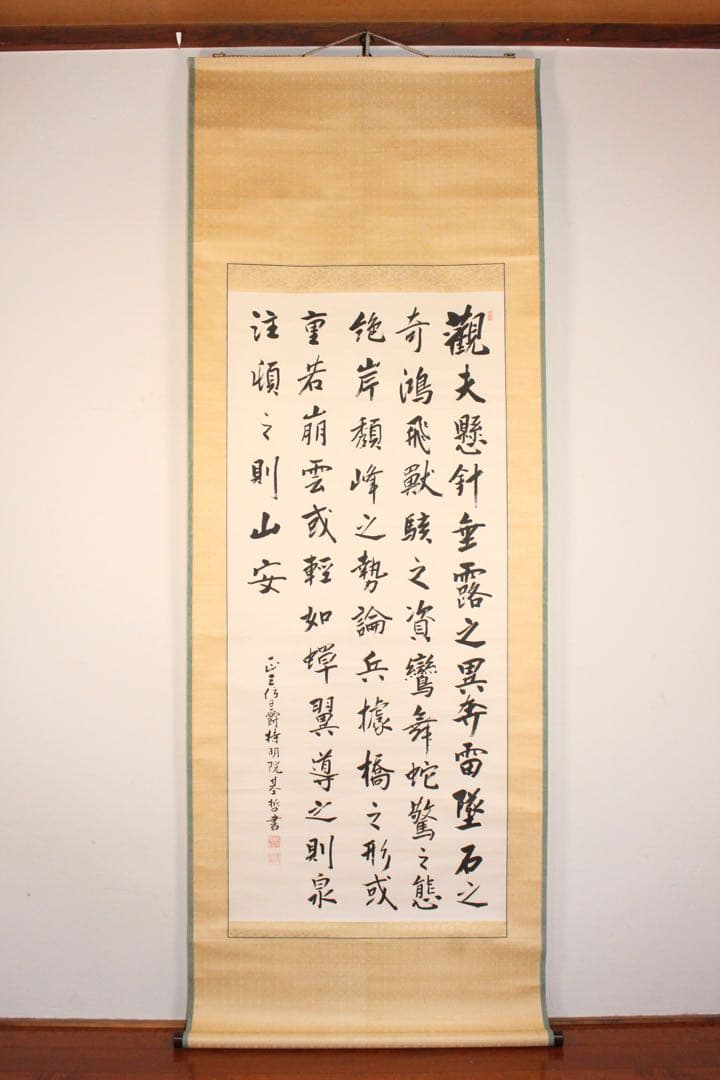 觀夫懸針垂露之異奔雷墜石之
奇鴻飛獸駭之資鸞舞蛇驚之態
絶岸頽峰之勢論兵據橋之形或
重若崩雲或輕如蟬翼導之則泉
注頓之則山安
正三位子爵持明院基哲書